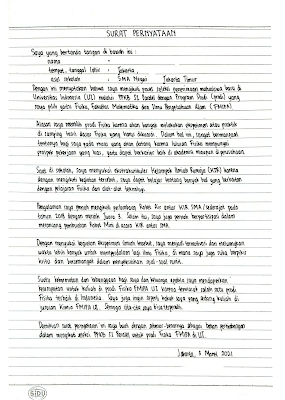 SURAT PERNYATAAN
Saya yang bertanda tangan di bawah ini :
nama :
tempat, tanggal lahir : Jakarta,
asal sekolah : SMA Negeri Jakarta Timur
Dengan ini menyatakan bahwa saya mengikuti proses seleksi penerimaan mahasiswa baru di
Universitas Indonesia (UI) melalui PPKB S1 Paralel dengan Program Studi (prodi) yang
saya pilih yaitu Fisika, Fakultas Matematika dan Ilmu Pengetahuan Alam (FMIPA).
Alasan saya memilih prodi Fisika karena akan banyak melakukan eksperimen atau praktik
di samping teori dasar Fisika yang harus dikuasai. Dalam hal ini, sangat bermanfaat
tentunya bagi saya pada masa yang akan datang karena lulusan Fisika mempunyai
prospek pekerjaan yang luas, yaitu dapat berkarier baik di akademik maupun di perusahaan.
Saat di sekolah, saya mengikuti ekstrakurikuler Kelompok Ilmiah Remaja (KIR) karena
dengan mengikuti kegiatan tersebut, saya dapat belajar tentang banyak hal yang berkaitan
dengan pelajaran Fisika dan alat-alat teknologi.
Pengalaman saya pernah mengikuti perlombaan Roket Air antar KIR SMA/sederajat pada
tahun 2018 dengan meraih Juara 3. Selain itu, saya juga pernah berpartisipasi dalam
merancang pembuatan Robot Mini di acara KIR antar SMA.
Dengan menyukai kegiatan eksperimen ilmiah tersebut, saya menjadi termotivasi dan meluangkan
waktu lebih banyak untuk memperdalam lagi ilmu Fisika, di mana saya juga suka berpikir
kritis dan bersemangat dalam menyelesaikan soal-soal rumit.
Suatu kehormatan dan kebanggaan bagi saya dan keluarga apabila saya mendapatkan
kesempatan untuk kuliah di prodi Fisika FMIPA UI karena termasuk salah satu prodi
Fisika terbaik di Indonesia. Saya juga ingin seperti kakak saya yang sedang kuliah di
jurusan Kimia FMIPA UI. Semoga cita-cita saya bisa tercapai.
Demikian surat pernyataan ini saya buat dengan sebenar-benarnya sebagai bahan pertimbangan
dalam mengikuti seleksi PPKB S1 Paralel untuk prodi Fisika FMIPA di UI.
Jakarta, Maret 2021
SIDU